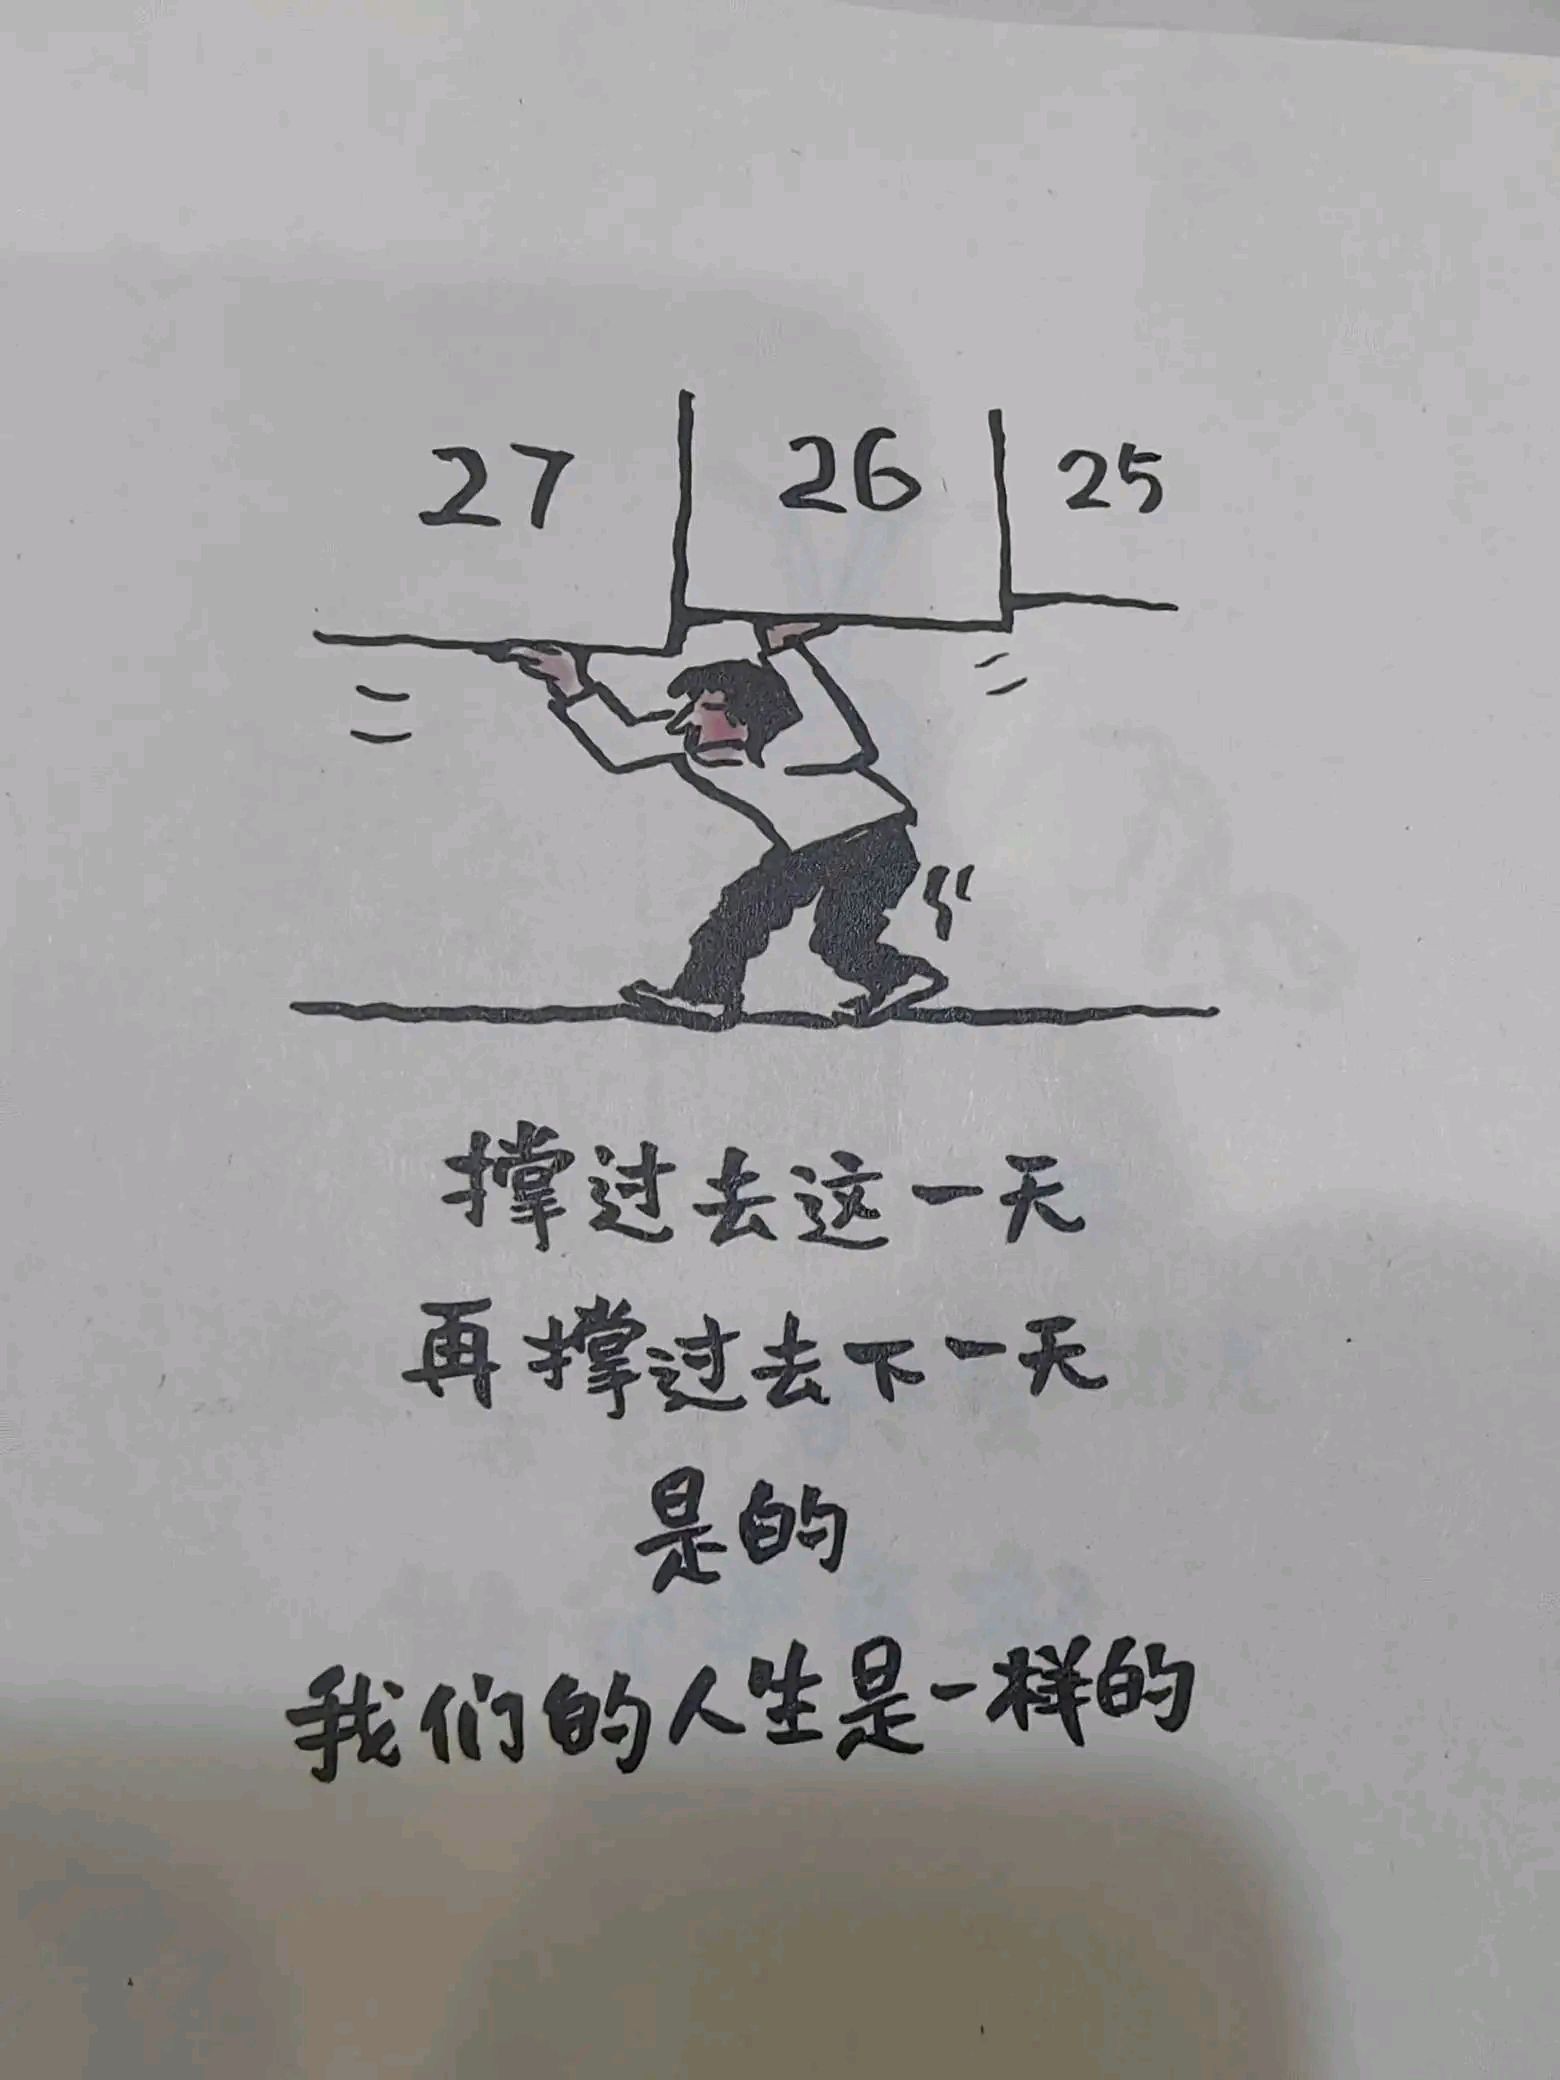 27 26 25
撑过去这一天
再撑过去下一天
是的
我们的人生是一样的